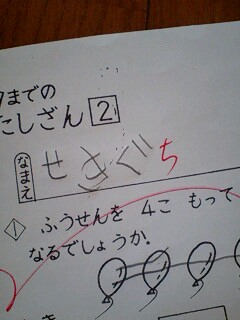 7までの
たしざん 2
なまえ せきぐち
① ふうせんを 4こ もって
なるでしょうか.